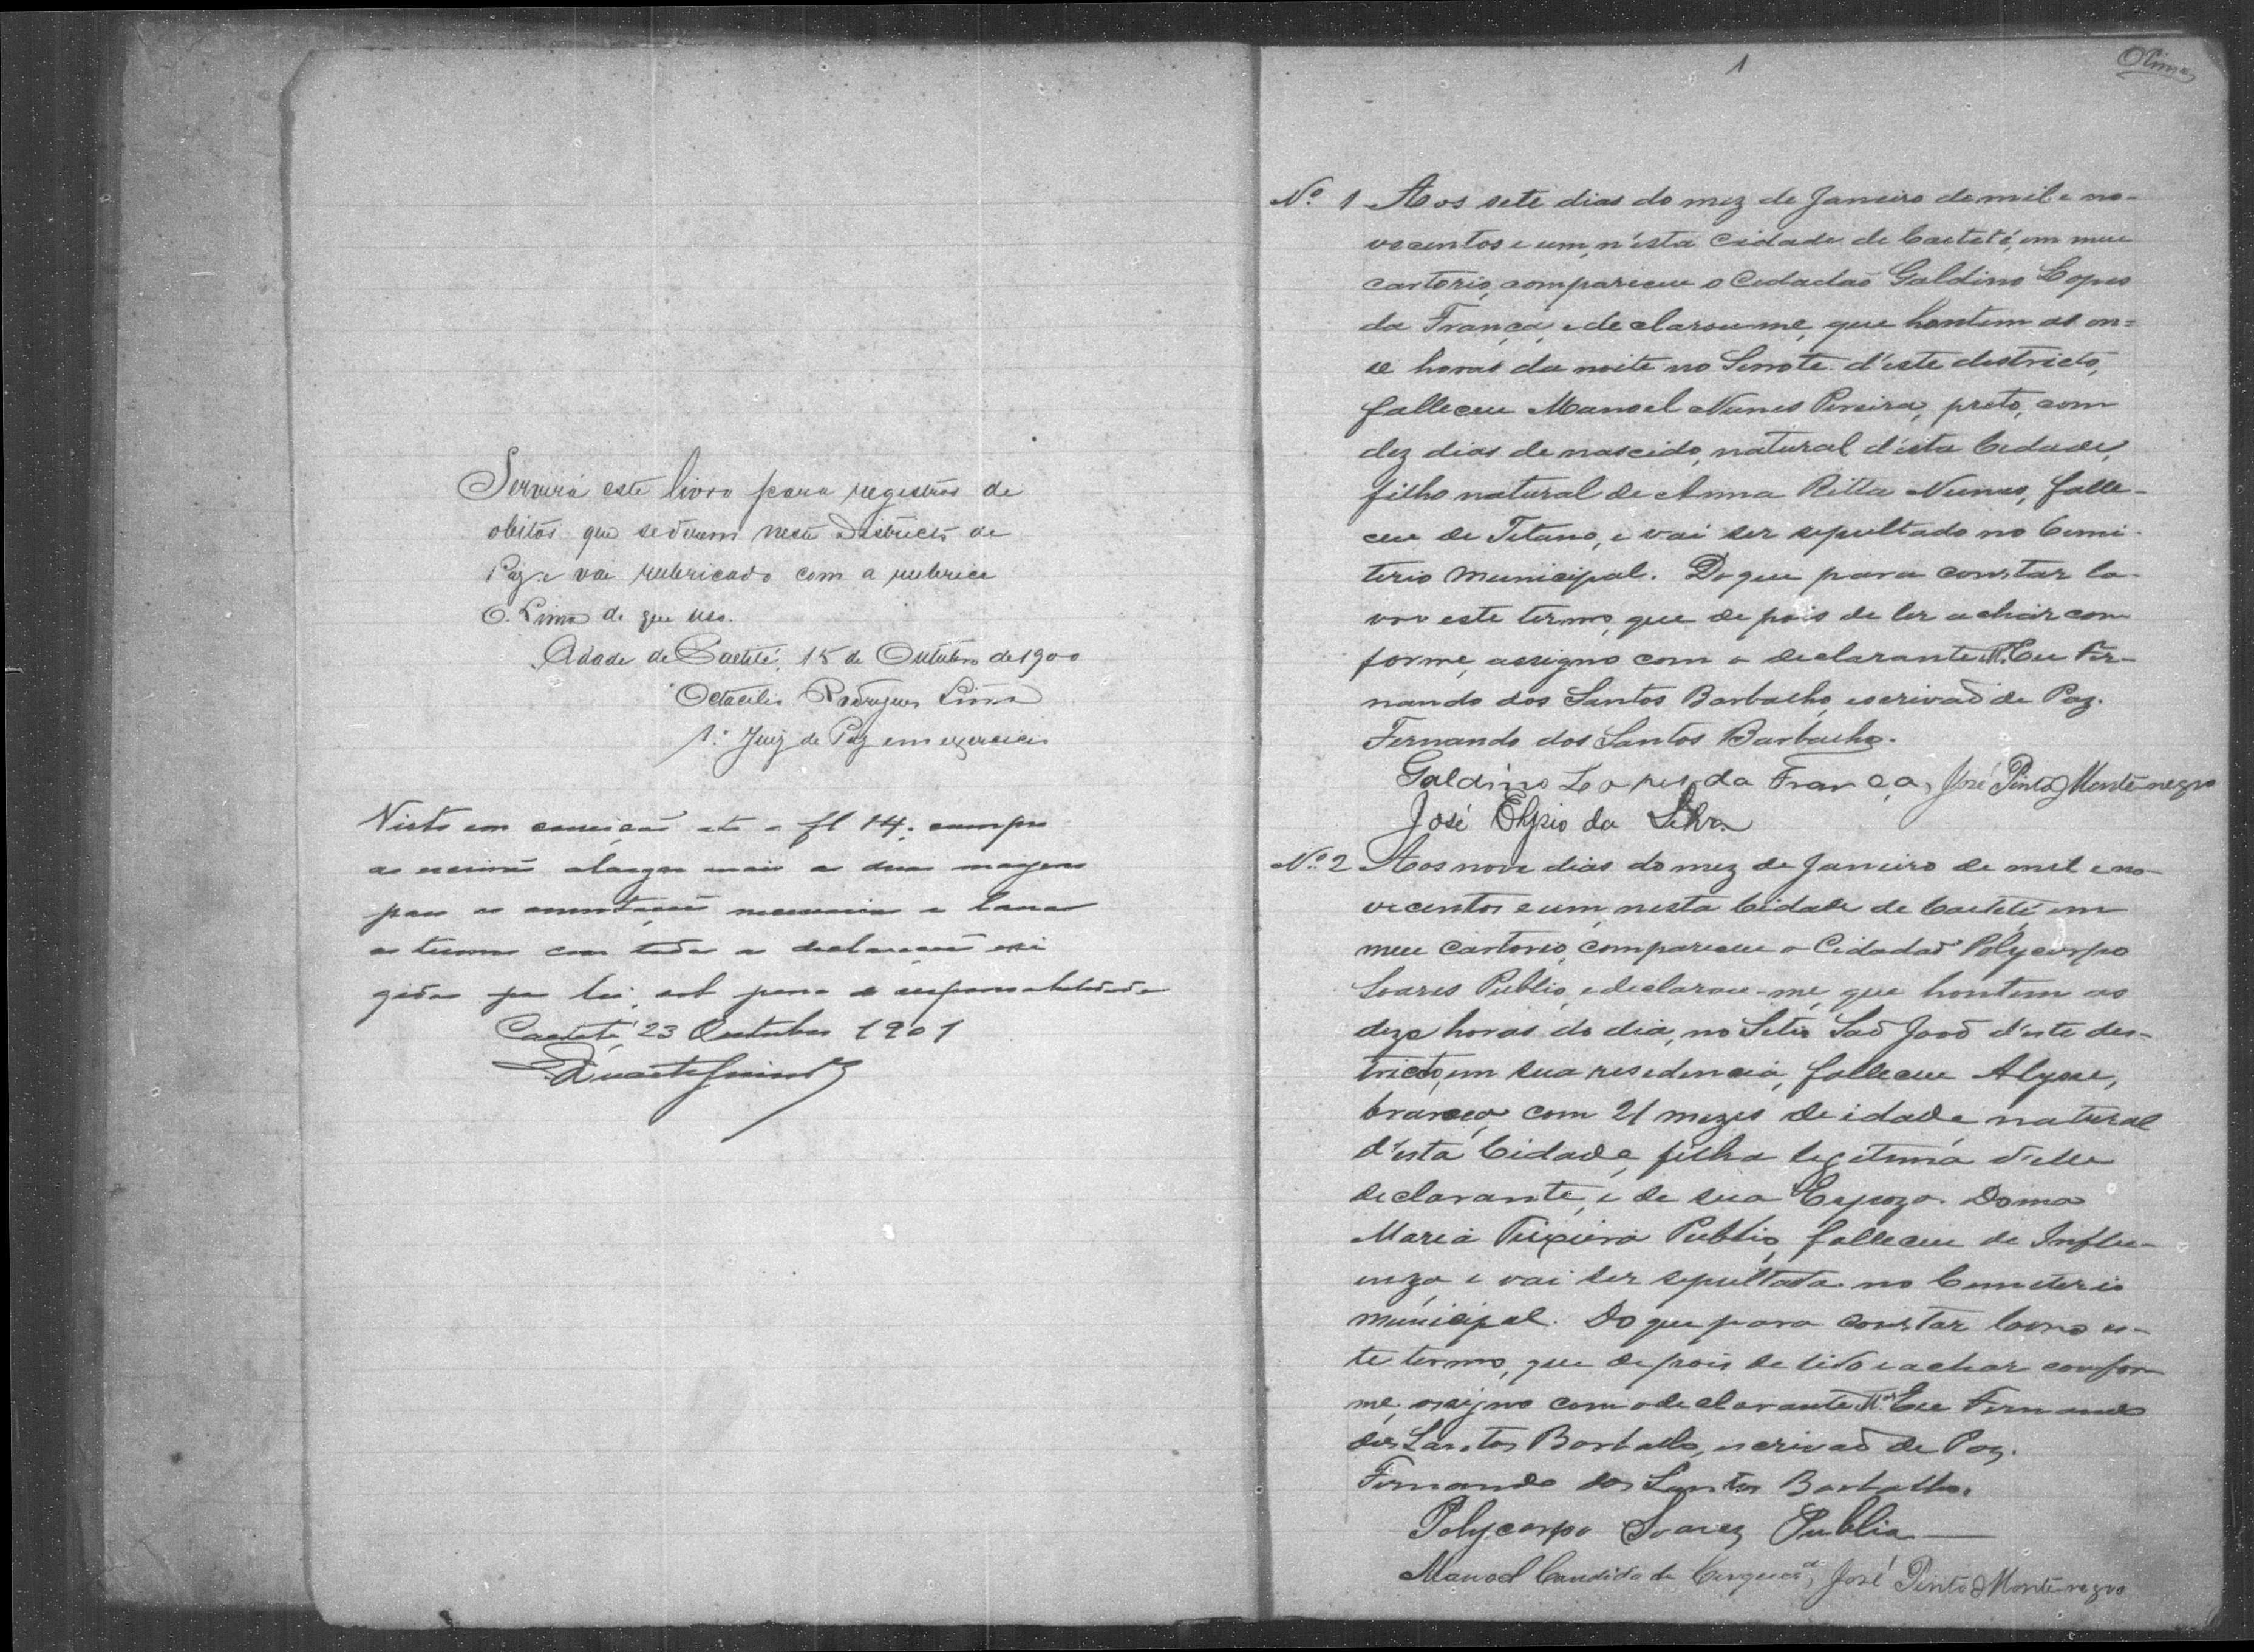 Servirá este livro para registros de
obitos que se derem neste Districto de
Paz e vai rubricado com a rubrica
O. Lima de que uso.
Cidade de Caeteté, 15 de Outubro de 1900
Octacilio Rodrigues Lima
1º Juiz de Paz em exercicio
Visto em correição até a fl 14; cumpre
ao escrivão alargar mais as duas margens
para as annotações necessarias e lavrar
os termos com todas as declarações exi
gidas por lei, sob pena de responsabilidade
Caeteté, 23 Outubro 1901
1
O Lima
Nº 1 Aos sete dias do mez de Janeiro de mil e no-
vecentos e um, n'esta Cidade de Caeteté, em meu
cartorio, compareceu o Cidadão Galdino Lopes
da França, e declarou-me, que hontem as on=
se horas da noite no Serrote d'este districto,
falleceu Manoel Nunes Pereira, preto, com
dez dias de nascido, natural d'esta Cidade,
filho natural de Anna Ritta Nunes, falle-
ceu de Tetano, e vai ser sepultado no Cemi-
terio Municipal. Do que para constar la-
vov este termo, que depois de ler e achar con
forme, assigno com o declarante Eu Fer-
nando dos Santos Barbalho, escrivão de Paz.
Fernando dos Santos Barbalho.
Galdino Lopes da França, José Pinto Montenegro
José Elpsio da Silva
Nº 2 Aos nove dias do mez de Janeiro de mil e no-
vecentos e um, nesta Cidade de Caeteté em
meu cartorio, compareceu o Cidadão Polycarpo
Soares Publio, e declarou-me, que hontem as
doze horas do dia, no Sitio São João d'este des-
tricto, em sua residencia, falleceu Alysse,
branca, com 21 mezes de idade natural
d'esta Cidade, filha legitima d'elle
declarante, e de sua Espoza Dona
Maria Teixeira Publio, falleceu de Influ-
enza, e vai ser sepultada no Cemeterio
municipal. Do que para constar lavro es-
te termo, que depois de lido e achar confor
me, assigno com o declarante Eu Fernando
dos Santos Barbalho, escrivão de Paz.
Fernando dos Santos Barbalho.
Polycarpo Soares Publio
Manoel Candido de, José Pinto Montenegro